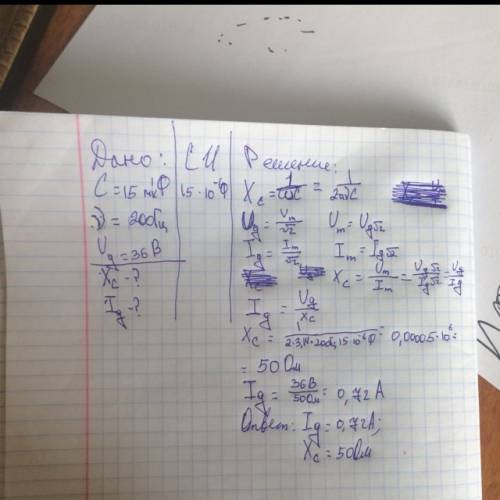 Дано:
С = 15 мкФ
ν = 200Гц
Uд = 36В
Xc - ?
Iд - ?
СИ
15·10⁻⁶Ф
Решение:
Xc = 1/ωC = 1/2πνC
Uд = Um/√2 Um = Uд√2
Iд = Im/√2 Im = Iд√2
Xc = Um/Im = Uд√2/Iд√2 = Uд/Iд
Iд = Uд/Xc
Xc = 1/2·3,14·200Гц·15·10⁻⁶Ф = 0,00005·10⁶ =
= 50 Ом
Iд = 36В/50Ом = 0,72 А
Ответ: Iд = 0,72А;
Xc = 50Ом